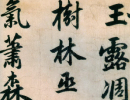 玉露凋
樹林巫
氣蕭森